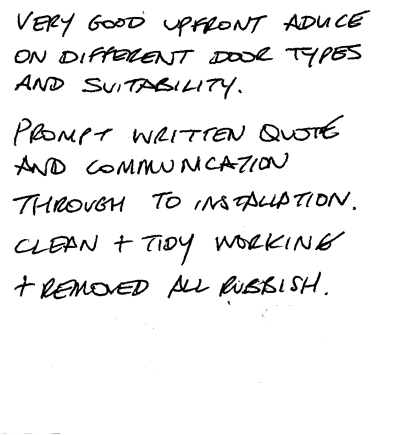 VERY GOOD UPFRONT ADVICE
ON DIFFERENT DOOR TYPES
AND SUITABILITY.
PROMPT WRITTEN QUOTE
AND COMMUNICATION
THROUGH TO INSTALLATION.
CLEAN + TIDY WORKING
+ REMOVED ALL RUBBISH.